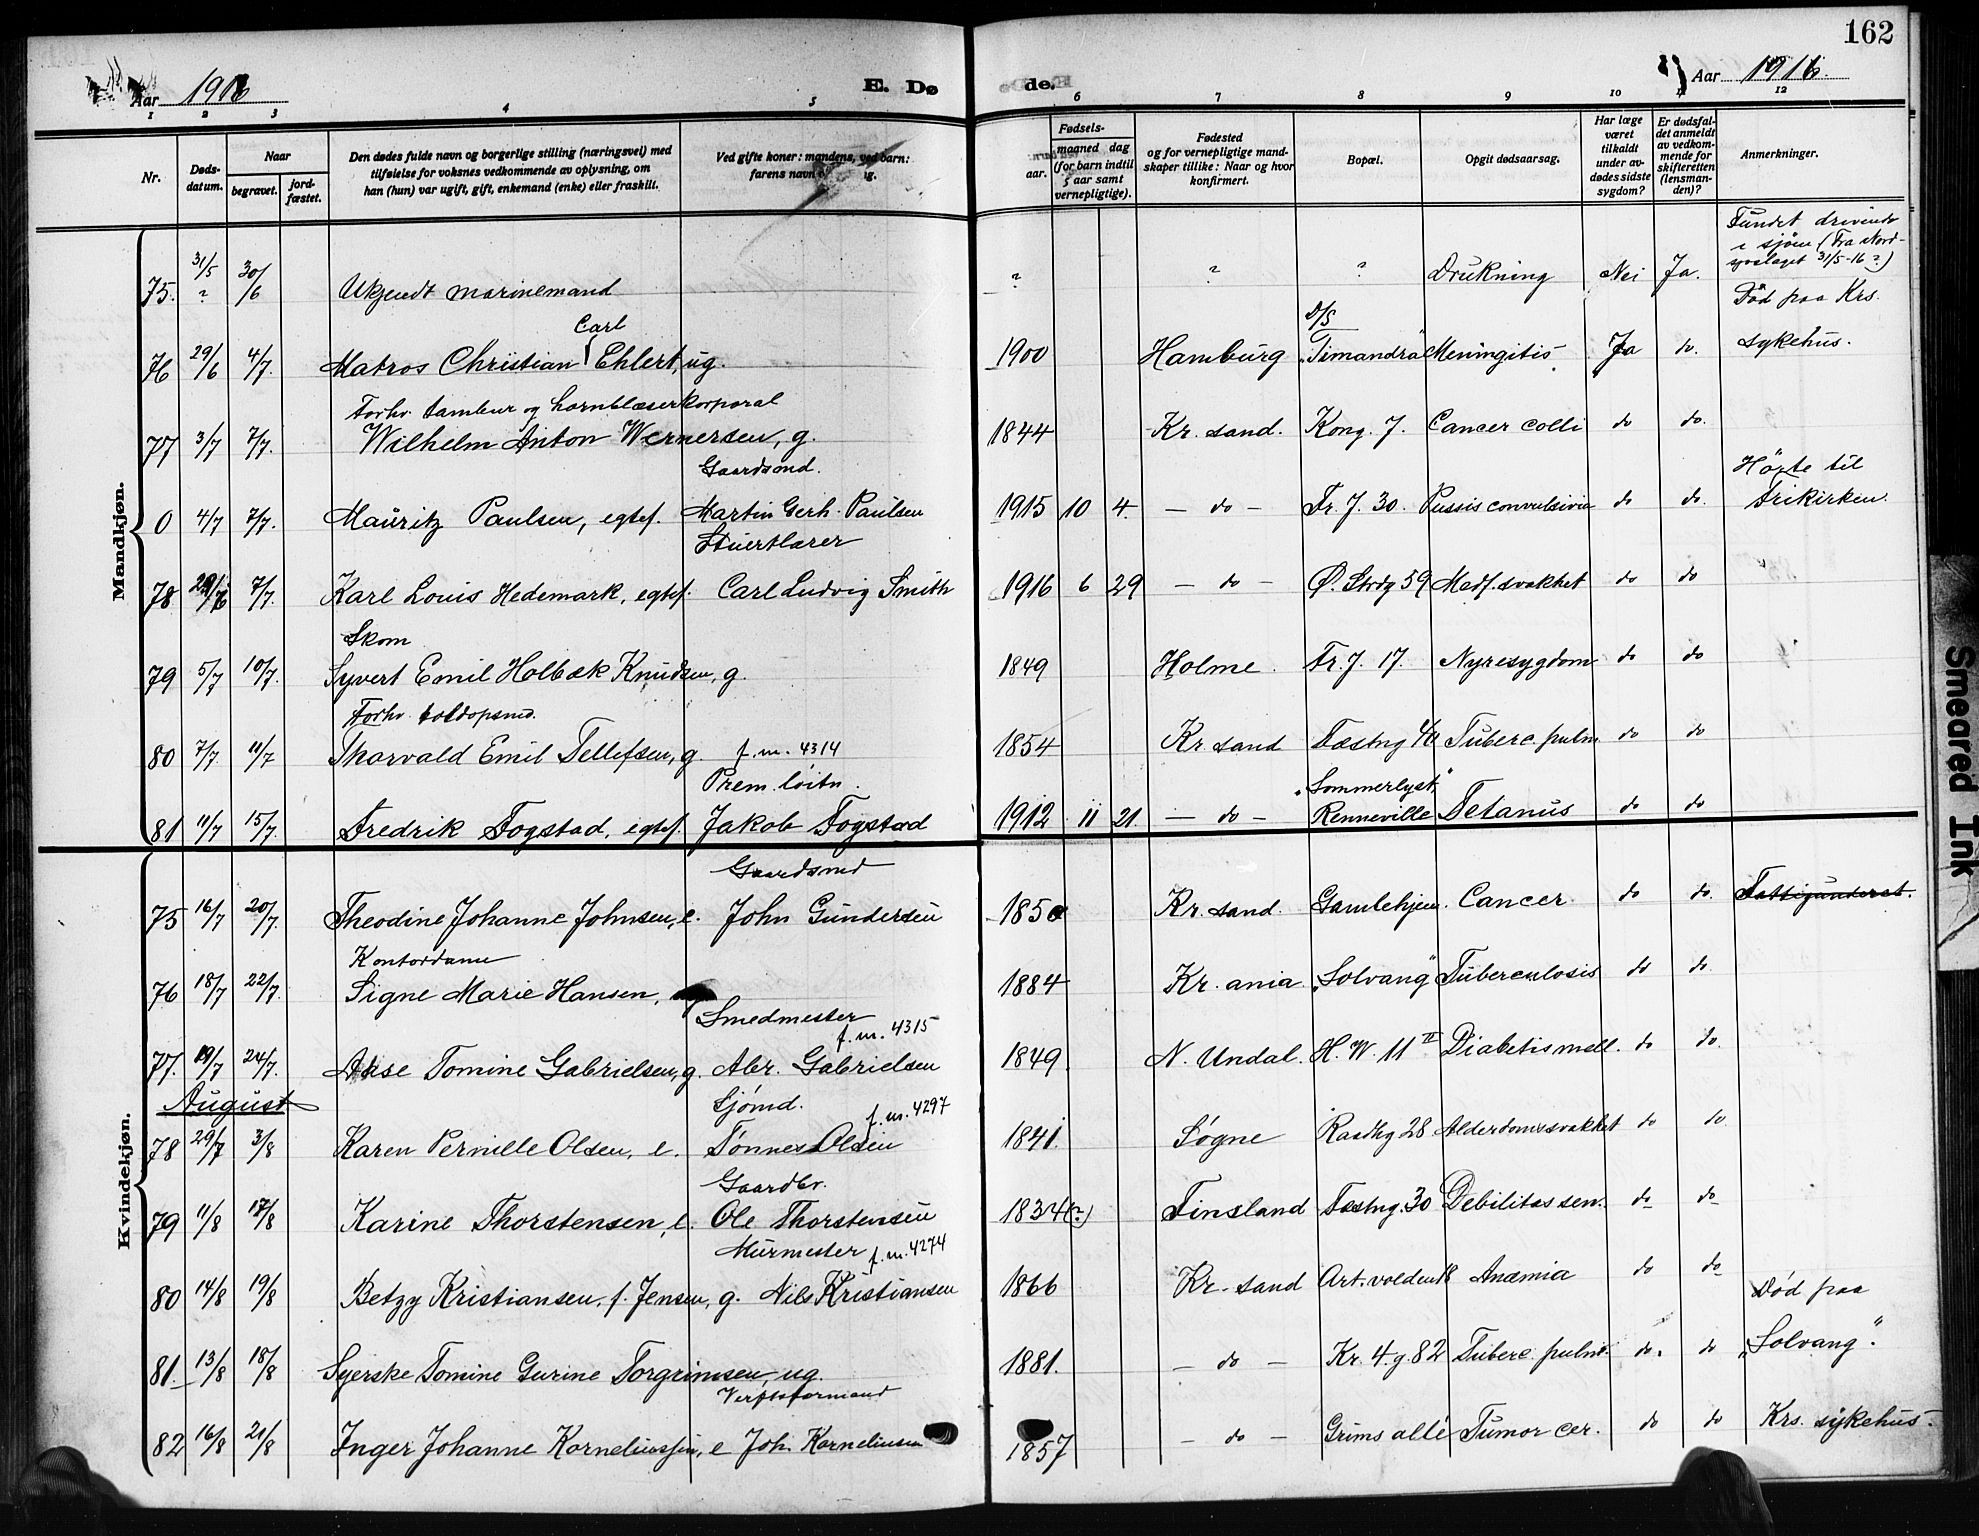 162
Aar 1916
E. Dø de.
Aar 1916.
1 2 3 4 5 6 7 8 9 10 11 12
Nr.
Døds-
datum.
Naar
begravet.
jord-
fæstet.
Den dødes fulde navn og borgerlige stilling (næringsvei) med
tilføielse for voksnes vedkommende av oplysning, om
han (hun) var ugift, gift, enkemand (enke) eller fraskilt.
Ved gifte koner: mandens, ved barn:
farens navn
Fødsels-
aar.
maaned dag
(for barn indtil
5 aar samt
vernepligtige).
Fødested
og for vernepligtige mand-
skaper tillike: Naar og hvor
konfirmert.
Bopæl.
Opgit dødsaarsag.
Har læge
været
tilkaldt
under av-
dødes sidste
sygdom?
Er dødsfal-
det anmeldt
av vedkom-
mende for
skifteretten
(lensman-
den)?
Anmerkninger.
Mandkjøn.
Fundet drivende
i sjøen (Fra Nord-
sjøslaget 31/5-16 ?)
75. 31/5 ? 30/6 Ukjendt marinemand ? ? ? Drukning Nei Ja.
Carl
D/S
Død paa Krs.
76 29/6 4/7. Matros Christian Ehlert, ug. 1900 Hamburg "Timandra" Meningitis Ja do. sykehus.
Forhv. tambur og hornblæserkorporal
77 3/7 7/7. Wilhelm Anton Wernersen, g. 1844 Kr. sand. Kong. 7. Cancer colli do do.
Gaardsmd.
Hørte til
0 4/7 7/7. Mauritz Paulsen, egtef. Martin Gerh. Paulsen 1915 10 4. - do - Fr. J. 30. Tussis convulsiva do do. Frikirken.
Stuertlærer
78 7/7. Karl Louis Hedemark, egtef. Carl Ludvig Smith 1916 6 29 - do - Ø. Strdg 59 Medf. svakhet do do
Skom
79 5/7 10/7. Syvert Emil Holbæk Knudsen, g. 1849 Holme. Fr. J. 17. Nyresygdom do do
Forhv. toldopsmd.
80 7/7. 11/7 Thorvald Emil Tellefsen, g. f. m. 4314 1854 Kr. sand Fæstng Tuberc. pulm. do do
Prem. løitn.
"Sommerlyst"
81 11/7 15/7. Fredrik Fogstad, egtef. Jakob Fogstad 1912 11 21. - do - Renneville Tetanus do do
Kvindekjøn.
Gaardsmd
75 16/7 20/7. Theodine Johanne Johnsen, e. John Gundersen 1850 Kr. sand. Gamlehjem. Cancer do do. Fattigunderst.
Kontordame
76 18/7 22/7. Signe Marie Hansen, 1884 Kr. ania. "Solvang" Tuberculosis do do.
Smedmester
f. m. 4315
77. 19/7 24/7. Akse Tomine Gabrielsen, g. Abr. Gabrielsen 1849. N. Undal. H. W. 11 II Diabetis mell. do do.
August
Sjømd.
f. m. 4297
78 29/7 3/8 Karen Pernille Olsen, e. Tønnes Olsen 1841. Søgne Raadhg 28 Alderdomssvakhet do do
Gaardbr.
79 11/8 17/8 Karine Thorstensen, e. Ole Thorstensen 1834(?) Finsland Fæstng. 30 Debilitas sen. do do
Murmester f. m. 4274
80 14/8 19/8 Betzy Kristiansen, f. Jensen, g. Nils Kristiansen 1866 Kr. sand Art. volden 18 Anæmia do do
Død paa
81. 13/8 18/8 Syerske Tomine Gurine Torgrimsen, ug. 1881. - do - Kr. 4. g 82 Tuberc. pulm. do. do "Solvang".
Verftsformand
82 16/8 21/8 Inger Johanne Korneliussen, e Joh. Korneliusen 1857 - do - Grims allé Tumor cer. do do Krs. sykehus.
Smeared Ink